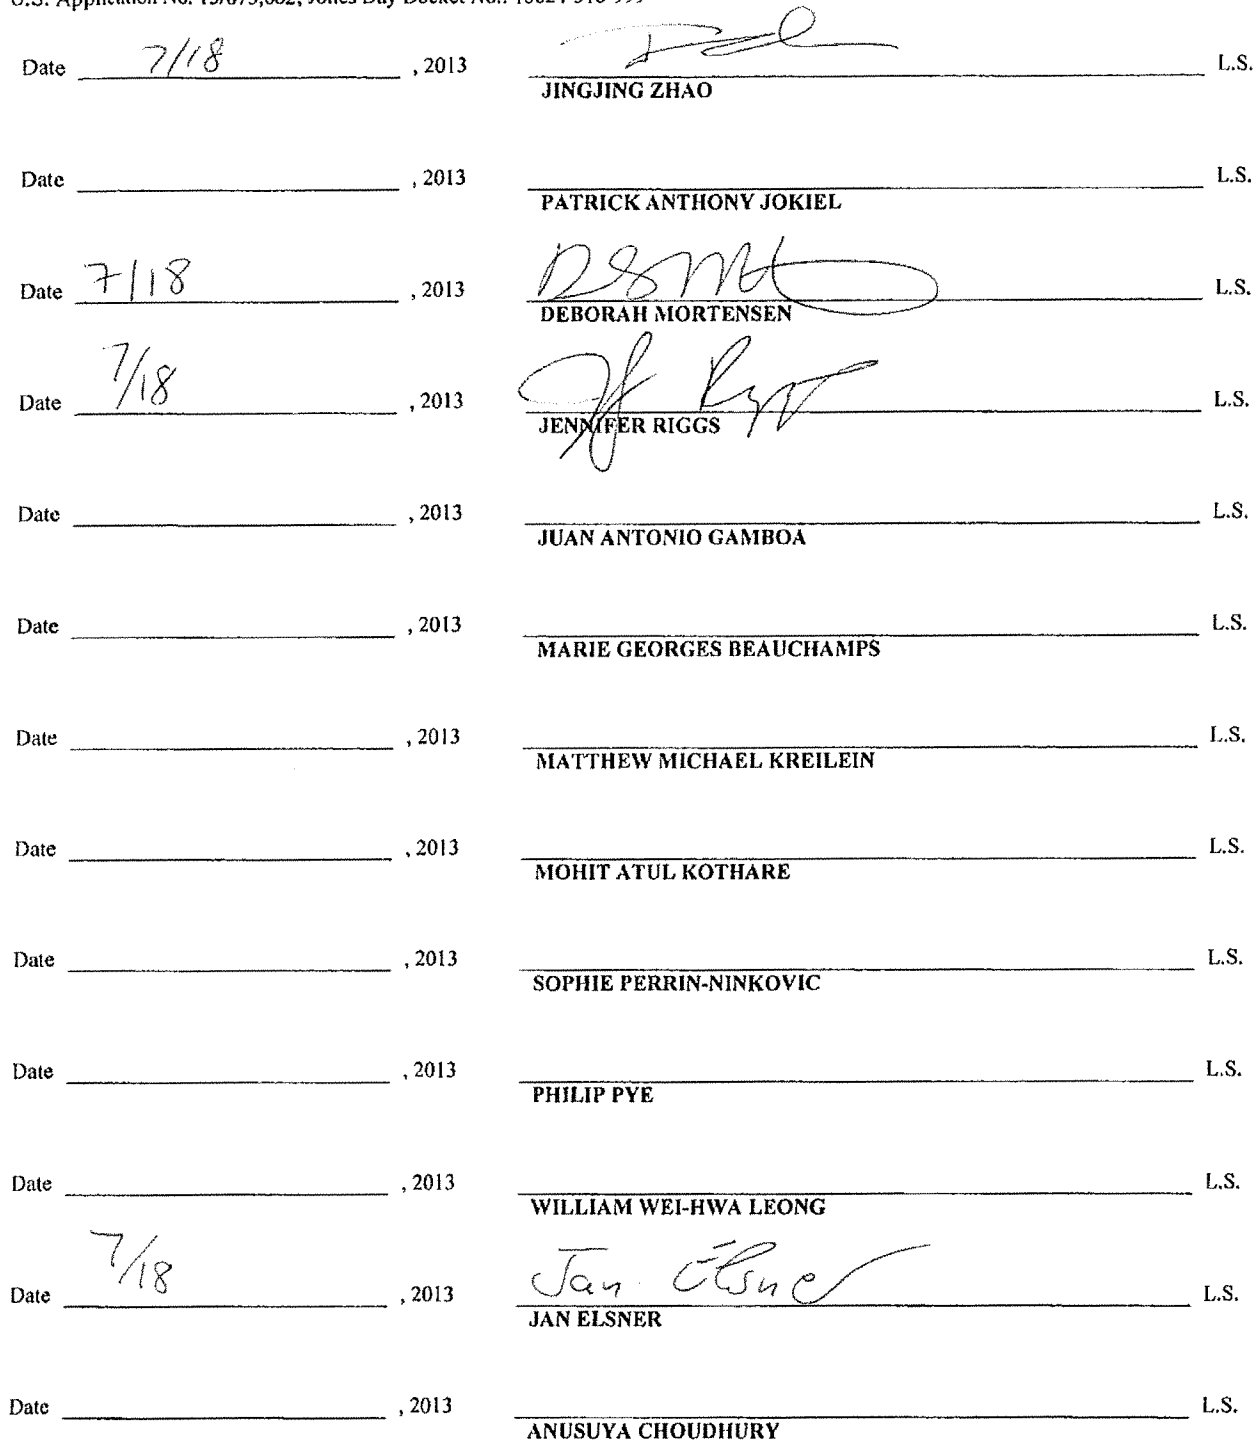 Date 7/18 , 2013 L.S.
JINGJING ZHAO
Date , 2013 L.S.
PATRICK ANTHONY JOKIEL
Date 7/18 , 2013 L.S.
DEBORAH MORTENSEN
Date 7/18 , 2013 L.S.
JENNIFER RIGGS
Date , 2013 L.S.
JUAN ANTONIO GAMBOA
Date , 2013 L.S.
MARIE GEORGES BEAUCHAMPS
Date , 2013 L.S.
MATTHEW MICHAEL KREILEIN
Date , 2013 L.S.
MOHIT ATUL KOTHARE
Date , 2013 L.S.
SOPHIE PERRIN-NINKOVIC
Date , 2013 L.S.
PHILIP PYE
Date , 2013 L.S.
WILLIAM WEI-HWA LEONG
Date 7/18 , 2013 Jan Elsner L.S.
JAN ELSNER
Date , 2013 L.S.
ANUSUYA CHOUDHURY